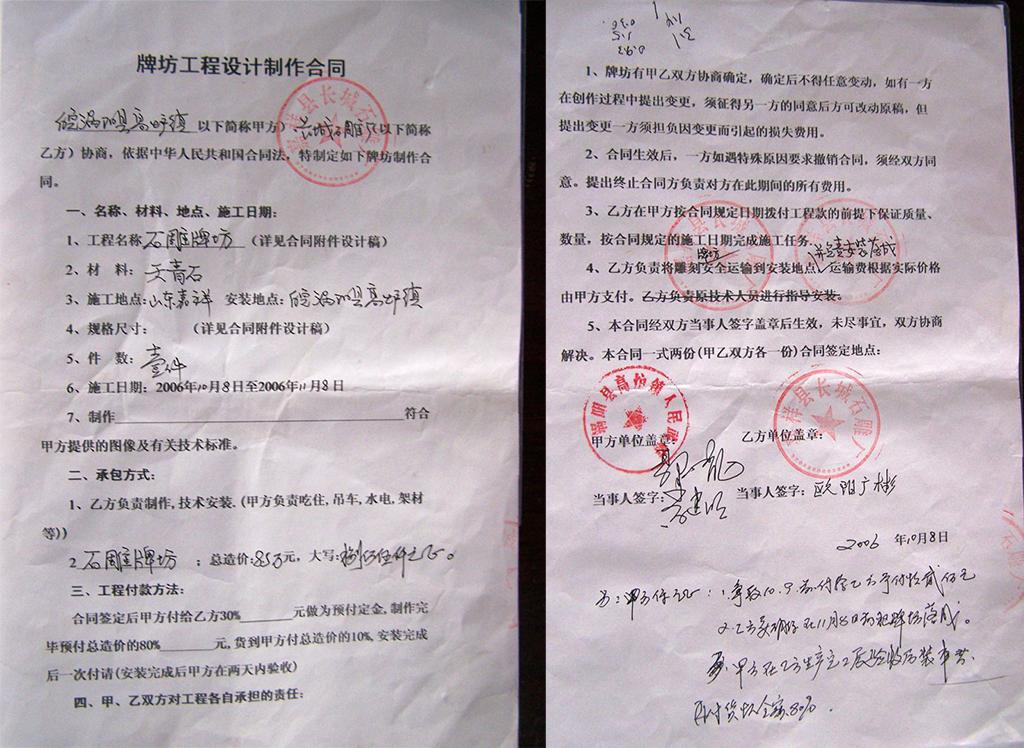 牌坊工程设计制作合同
皖涡阳县高炉镇 以下简称甲方）长城石雕厂（以下简称
乙方）协商，依据中华人民共和国合同法，特制定如下牌坊制作合
同。
一、名称、材料、地点、施工日期：
1、工程名称 石雕牌坊 （详见合同附件设计稿）
2、材 料：天青石
3、施工地点：山东嘉祥 安装地点：皖涡阳县高炉镇
4、规格尺寸： （详见合同附件设计稿）
5、件 数：壹件
6、施工日期：2006年10月8日至2006年11月8日
7、制作 符合
甲方提供的图像及有关技术标准。
二、承包方式：
1、乙方负责制作,技术安装.(甲方负责吃住,吊车,水电,架材
等))
2 石雕牌坊 ；总造价:8.5万元，大写:捌万伍仟元正。
三、工程付款方法：
合同签定后甲方付给乙方30% 元做为预付定金,制作完
毕预付总造价的80% 元,货到甲方付总造价的10%,安装完成
后一次付请(安装完成后甲方在两天内验收)
四、甲、乙双方对工程各自承担的责任：
1、牌坊有甲乙双方协商确定，确定后不得任意变动，如有一方
在创作过程中提出变更，须征得另一方的同意后方可改动原稿，但
提出变更一方须担负因变更而引起的损失费用。
2、合同生效后，一方如遇特殊原因要求撤销合同，须经双方同
意。提出终止合同方负责对方在此期间的所有费用。
3、乙方在甲方按合同规定日期拨付工程款的前提下保证质量、
数量，按合同规定的施工日期完成施工任务。
牌坊 并负责安装落成
4、乙方负责将雕刻安全运输到安装地点，运输费根据实际价格
由甲方支付。乙方负责原技术人员进行指导安装。
5、本合同经双方当事人签字盖章后生效，未尽事宜，双方协商
解决。本合同一式两份(甲乙双方各一份)合同签定地点：
涡阳县高炉镇人民政府
嘉祥县长城石雕厂
甲方单位盖章： 乙方单位盖章：
当事人签字： 当事人签字：欧阳广彬
2006 年10月8日
1.争取10.9前付给乙方预付款贰万元
2.乙方要确保在11月8日前把牌坊落成。
3.甲方在乙方生产完工后验收后装车
再付货款全额80%.